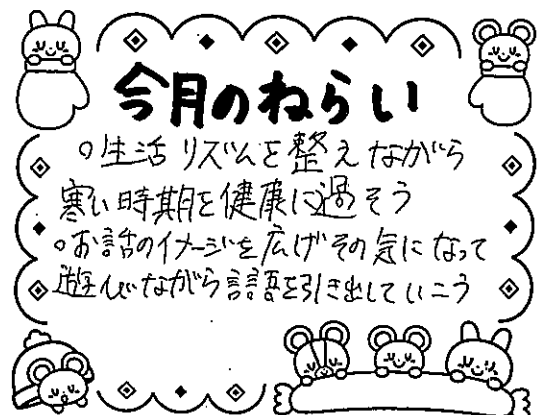 今月のねらい
○生活リズムを整えながら
寒い時期を健康に過そう
○お話のイメージを広げその気になって
遊びながら言語を引き出していこう